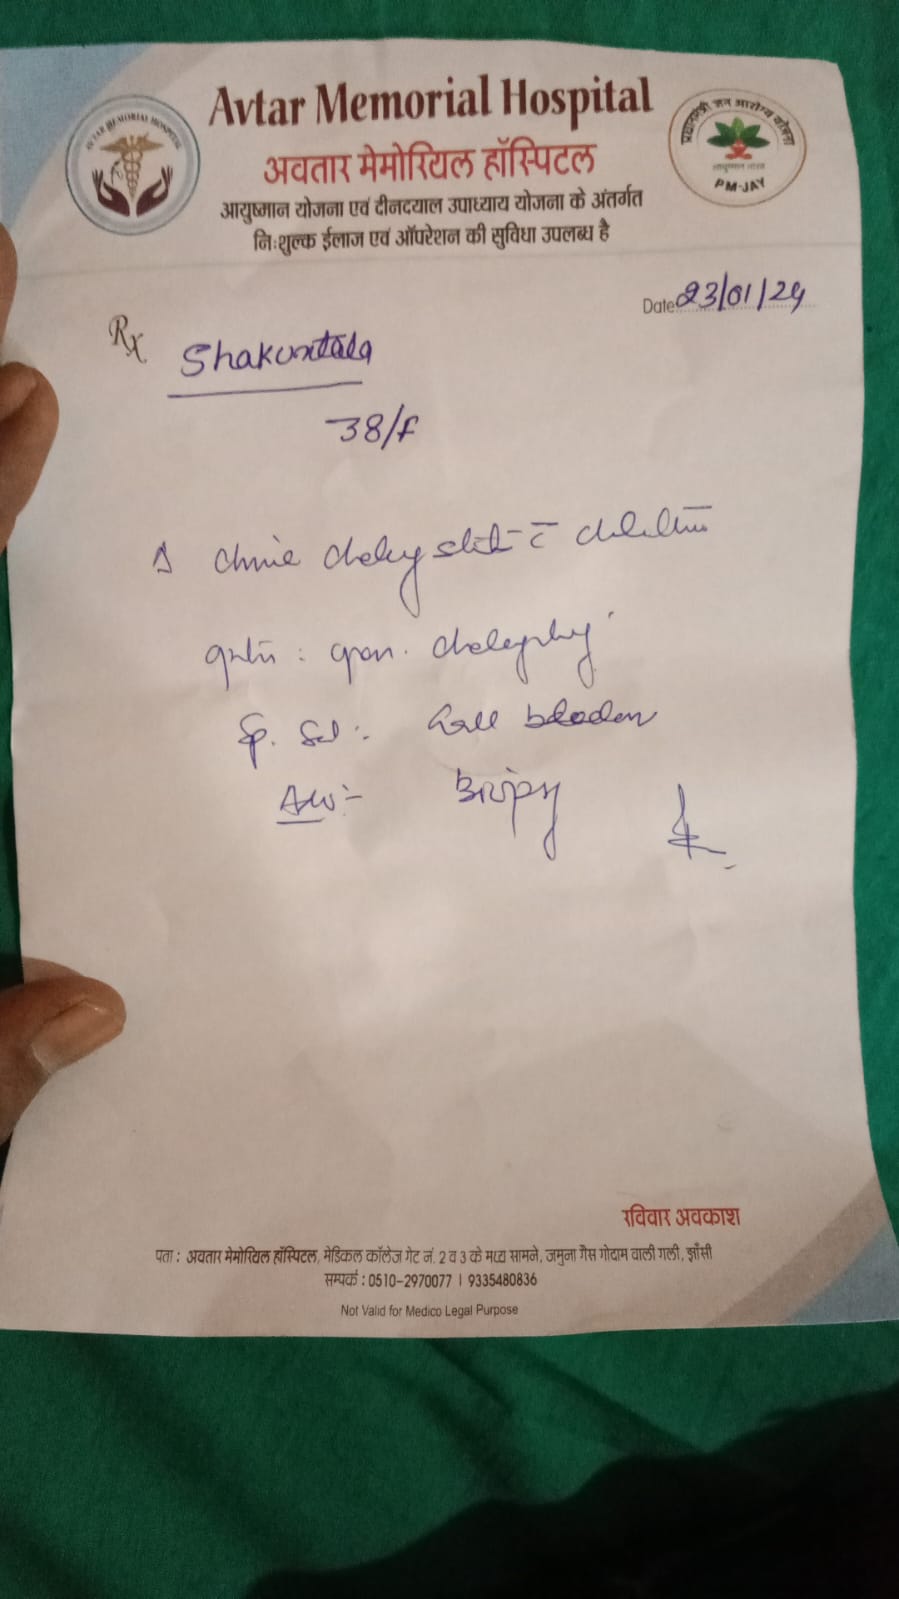 Avtar Memorial Hospital
अवतार मेमोरियल हॉस्पिटल
आयुष्मान योजना एवं दीनदयाल उपाध्याय योजना के अंतर्गत
निःशुल्क ईलाज एवं ऑपरेशन की सुविधा उपलब्ध है
AVTAR MEMORIAL HOSPITAL
प्रधानमंत्री जन आरोग्य योजना
PM-JAY
Date 23/01/24
Rx Shakuntala
38/f
Gall bladder
Adv:- Biopsy
रविवार अवकाश
पता : अवतार मेमोरियल हॉस्पिटल, मेडिकल कॉलेज गेट नं. 2 व 3 के मध्य सामने, जमुना गैस गोदाम वाली गली, झाँसी
सम्पर्क : 0510-2970077 | 9335480836
Not Valid for Medico Legal Purpose